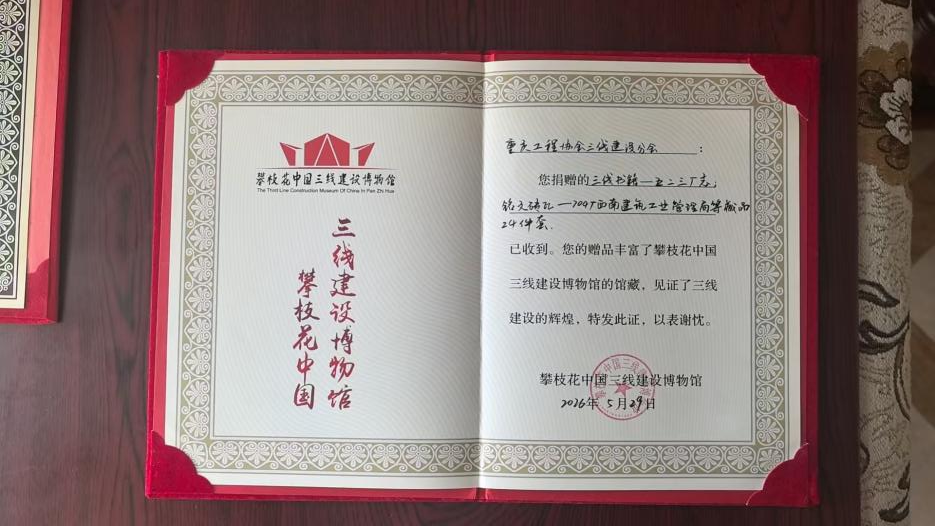 攀枝花中国三线建设博物馆
The Third Line Construction Museum Of China In Pan Zhi Hua
攀枝花中国
三线建设博物馆
重庆工程协会三线建设分会：
您捐赠的三线书籍—五二三厂志，
铭文砖瓦—104厂西南建筑工业管理局等藏品
24件套.
已收到。您的赠品丰富了攀枝花中国
三线建设博物馆的馆藏，见证了三线
建设的辉煌，特发此证，以表谢忱。
攀枝花中国三线建设博物馆
2026年5月29日